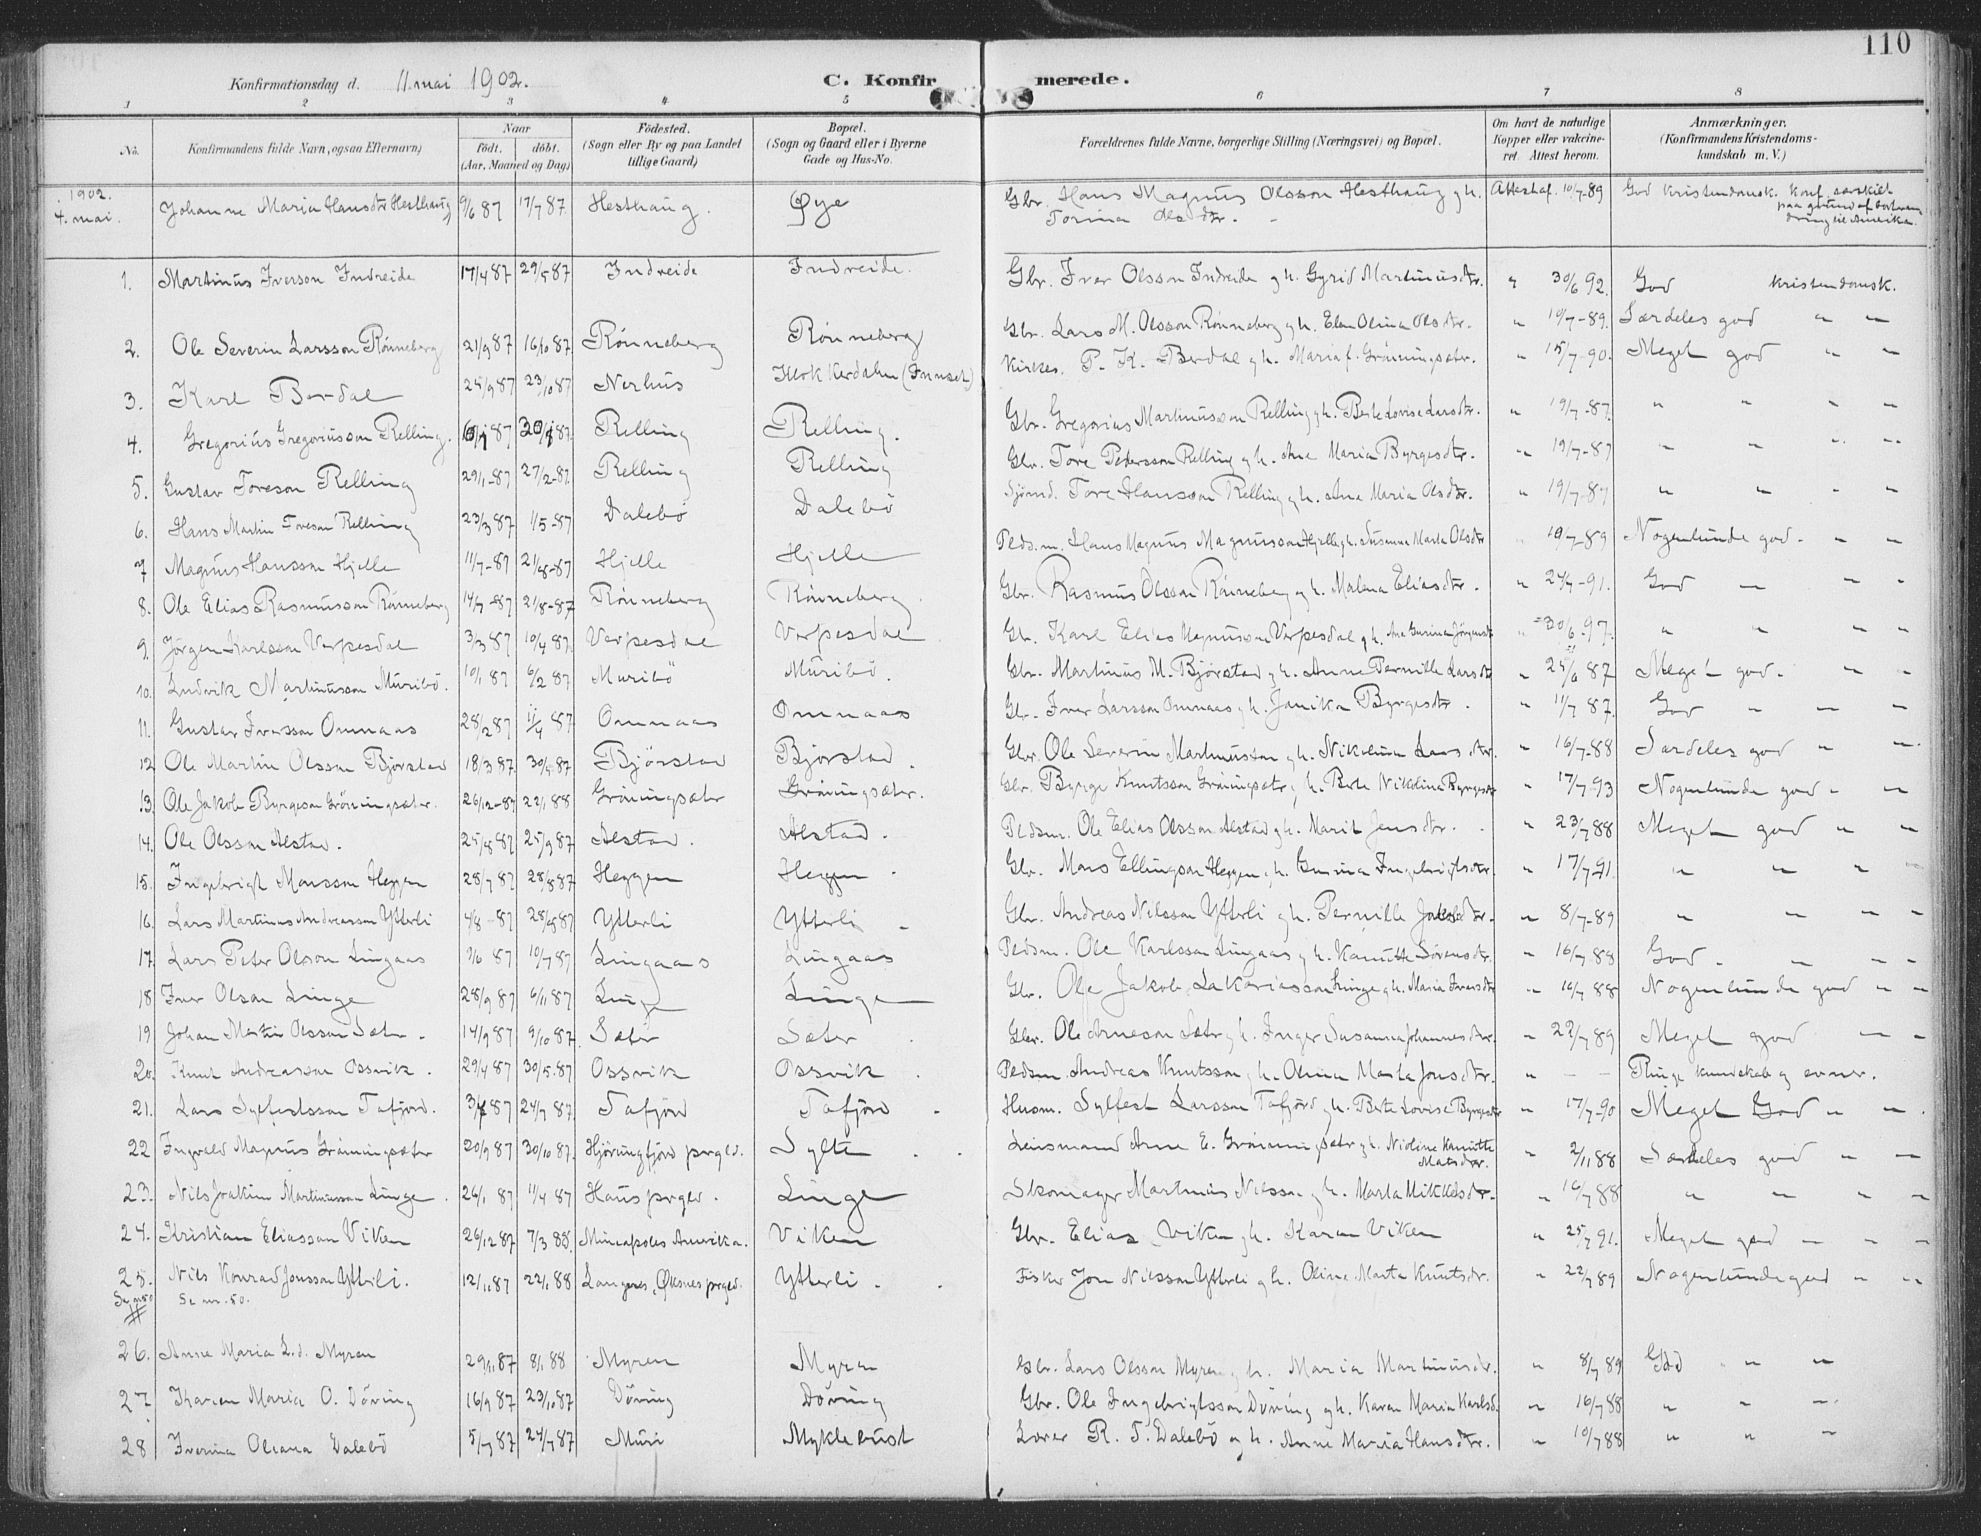 110
Konfirmationsdag d. 11 mai 1902. C. Konfirmerede.
1 2 3 4 5 6 7 8
No. Konfirmandens fulde Navn, ogsaa Efternavn) Naar födt. döbt. (Aar, Maaned og Dag) Födested. (Sogn eller By og paa Landet tillige Gaard) Bopæl. (Sogn og Gaard eller i Byerne Gade og Hus-No. Forældrenes fulde Navne, borgerlige Stilling (Næringsvei) og Bopæl. Om havt de naturlige Kopper eller vakcineret. Attest herom. Anmærkninger. (Konfirmandens Kristendomskundskab m. V.)
1902. 4. mai. Johanne Maria Hansdtr Hesthaug 9/6 87 17/7 87 Hesthaug. Øye Gbr. Hans Magnus Olsson Hesthaug g h. Torina Olsdtr. Attest af. 10/7-89 God kristendomsk. konf. særskilt paa grund af
1. Martinus Iverson Indreide 17/4 87 29/5 87 Indreide Indreide. Gbr. Iver Olsson Indreide g h. Gyrid Martinusdtr. " 30/6 92. God kristendomsk.
2. Ole Severin Larsson Rönneberg 21/9 87 16/10 87 Rönneberg Rönneberg Gbr. Lars M. Olsson Rönneberg g h. Elen Olina Olsdtr. " 10/7-89. Særdeles god " "
3. Karl Berdal 25/9 87 23/10 87 Nerhus Kirkes. P. K. Berdal g h. Maria f. Gröningsæter. " 15/7-90. Meget god " "
4. Gregorius Gregoriusson Relling. Relling Relling. Gbr. Gregorius Martinusson Relling g h. Berte Lovise Larsdtr. " 19/7-87. " " " "
5. Gustav Toreson Relling 29/1-87 27/2-87 Relling Relling Gbr. Tore Pedersson Relling g h. Ane Maria Byrgesdtr. " 19/7-87 " " " "
6. Hans Martin Toreson Relling 23/3 87 1/5-87 Dalebö Dalebö Sjömd. Tore Hansson Relling g h. Ane Maria Olsdtr. " 19/7-87 " " " "
7 Magnus Hansson Hjelle 11/7-87 21/8-87 Hjelle Hjelle Pldsm. Hans Magnus Magnusson Hjelle g h. Susanna Marta Olsdtr " 19/7-89 Nogenlunde god. " "
8. Ole Elias Rasmusson Rönneberg 14/7-87 21/8-87 Rönneberg Rönneberg. Gbr. Rasmus Olsson Rönneberg g h. Malena Eliasdtr. " 24/7-91. God " " "
9. Jörgen Karlsson Verpesdal 3/3 87 10/4 87. Verpesdal Verpesdal Gbr. Karl Elias Magnusson Verpesdal g h. Ane Gurina Jörgensdtr " 30/6-97. " " " "
10. Ludvik Martinusson Muribö. 10/1 87 6/2 87 Muribö Muribö. Gbr. Martinus M. Bjørstad g h. Anne Pernille Larsdtr " 25/6 87 Meget god. " "
11. Gustav Iversson Omnaas 28/2 87 11/4 87 Omnaas Omnaas Gbr. Iver Larsson Omnaas g h. Janika Byrgesdtr. " 11/7 87. God " " "
12 Ole Martin Olsson Bjørstad 18/3 87. Bjørstad Bjørstad. Gbr. Ole Severin Martinusson g h. Nikolina Larsdtr. " 16/7-88 Særdeles god " "
13. Ole Jakob Byrgeson Gröningsæter. 26/12-87 22/1 88 Gröningsæter Gröningsæter. Gbr. Byrge Knutsson Gröningsætr g h. Berte Nikolina Byrgesdtr " 17/7-93 Nogenlunde god " "
14. Ole Olsson Alstad. 25/8 87 25/9 87 Alstad. Alstad. Pldsm. Ole Elias Olsson Alstad g h. Marit Jensdtr. " 23/7 88 Meget god " "
15. Ingebrigt Monsson Heggen 28/7 87 28/8 87 Heggen Heggen. Gbr. Mons Ellingson Heggen g h. Gurina Ingebrigtsdtr. " 17/7-91. " " " "
16. Lars Martinus Andreasson Ytterli Ytterli Ytterli Gbr. Andreas Nilsson Ytterli g h. Pernille Jakobsdtr. " 8/7-89 " " " "
17. Lars Peter Olson Lingaas 10/7 87 Lingaas Lingaas Pldsm. Ole Karlsson Lingaas g h. Kanutte Sörensdtr. " 16/7-88 God. " " "
18 Iver Olson Linge 28/9 87 6/11 87 Linge Linge Gbr. Ole Jakob Sakariasson Linge g h. Maria Iversdtr " 16/7 88 Nogenlunde god " "
19. Johan Martin Olsson Sæter. 14/9 87 9/10 87. Sæter Sæter Gbr. Ole Arneson Sætr g h. Inger Susanna Johannesdtr. " 22/7 89 Meget god " "
20. Knut Andreasson Ossvik. 29/4 87 30/5-87 Ossvik Ossvik. Pldsm Andreas Knutsson g h. Olina Marta Jonsdtr. " - - Ringe kundskab og evner.
21. Lars Sylfestsson Tafjord. 24/7 87. Tafjord Tafjord Husm. Sylfest Larsson Tafjord g h. Berte Lovise Byrgesdtr " 17/7-90 Meget God " "
22 Ingvald Magnus Gröningsæter 20/9 87 30/10 87. Hjöringfjord prgld. Sylte Lensmand Arne E. Gröningsætr g h. Nioline Kanutte Matsdtr. " 2/11 88 Særdeles god " "
23. Nils Joakim Martinusson Linge. 26/1 87 11/4 87 Haus prgld. Linge Skomager Martinus Nilsson g h. Marta Mikkelsdtr. " 16/7 88 " " " "
24. Kristian Eliasson Viken 26/12 87 7/3 88. Mineapoles Amerika. Viken Gbr. Elias Viken g h. Karen Viken " 25/7 91. Meget god " " "
25. Nils Konrad Jonsson Ytterli. 12/11 87 22/1 88 Langenes, Øksnes prgld. Ytterli. Fisker Jon Nilsson Ytterli g h. Oline Marta Knutsdtr. " 22/7 89 Nogenlunde god " "
Se nr 50 Se nr. 50.
26. Anne Maria L.d. Myren 29/11 87 8/1 88 Myren Myren Gbr. Lars Olsson Myren g h. Maria Martinusdtr. " 8/7 89 God " "
27. Karen Maria O. Döving 16/9 87 23/10 87 Döving Döving Gbr. Ole Ingebrigtsson Döving g h. Karen Maria Karlsd. " 16/7 88 " " "
28 Iverina Oliana Dalebö 5/7 87 24/7 87 Muri Myklebust Lærer R. T. Dalebö g h. Anne Maria Hansdtr. " 10/7 88 " " "